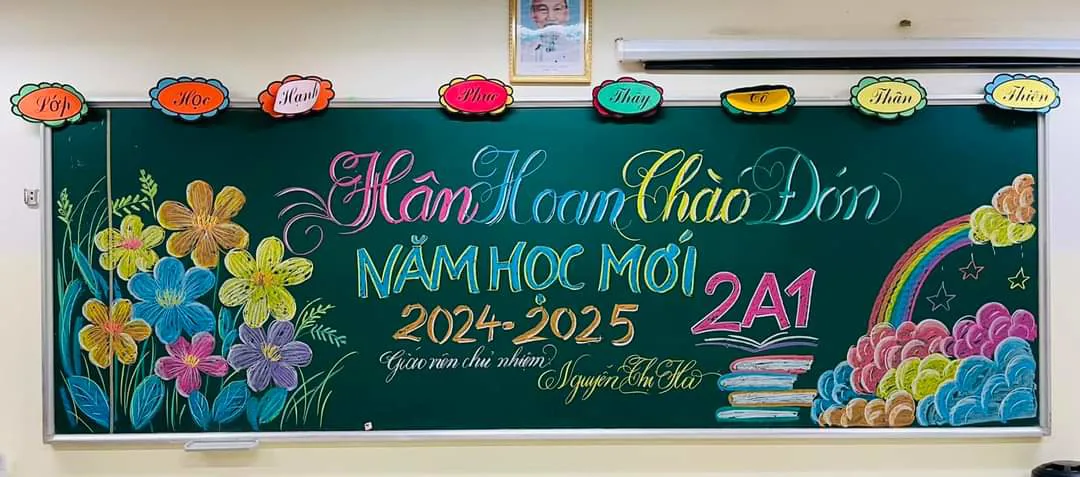 Lớp Học Hạnh Phúc Thầy Cô Thân Thiện
Hân Hoan Chào Đón
NĂM HỌC MỚI
2A1
2024-2025
Giáo viên chủ nhiệm: Nguyễn Thị Hà